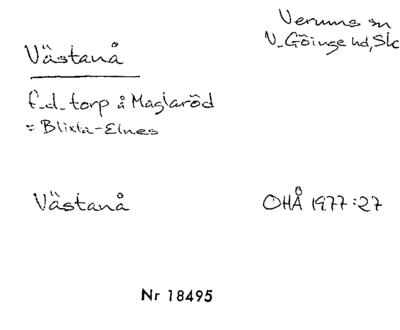 Verums sn
V. Göinge hd, Sk
Västanå
f.d. torp å Maglaröd
= Blixta-Elnes
Västanå
OHÅ 1977:27
Nr 18495